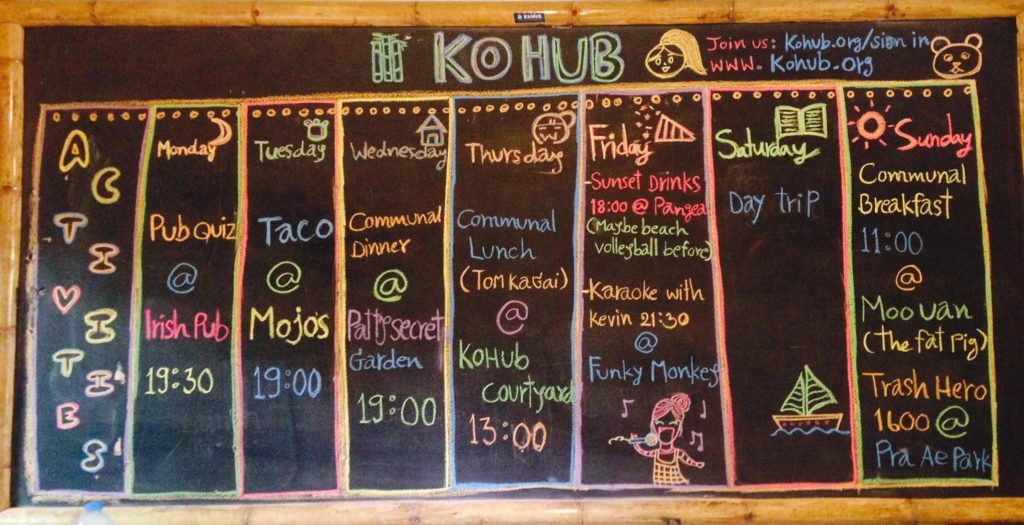 KoHub
KO HUB
Join us: Kohub.org/sign in
WWW. Kohub.org
ACTIVITIES
Monday
Pub Quiz
@
Irish Pub
19:30
Tuesday
Taco
@
Mojo's
19:00
Wednesday
Communal
Dinner
@
Patty secret
Garden
19:00
Thursday
Communal
Lunch
(Tom ka Gai)
@
KOHub
courtyard
13:00
Friday
-Sunset Drinks
18:00 @ Pangea
(Maybe beach
volleyball before)
-Karaoke with
Kevin 21:30
@
Funky Monkey
Saturday
Day trip
Sunday
Communal
Breakfast
11:00
@
Moo uan
(The fat pig)
Trash Hero
1600 @
Pra Ae Park